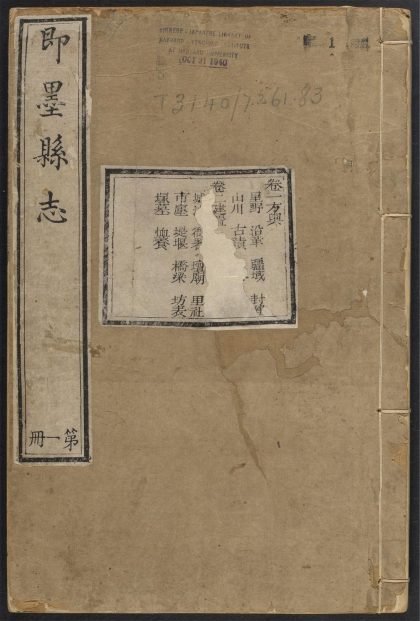 即墨縣志
第一冊
CHINESE-JAPANESE LIBRARY OF
HARVARD-YENCHING INSTITUTE
AT HARVARD UNIVERSITY
OCT 31 1940
1
T3140/7261.83
卷一方輿
星野 沿革 疆域 封
山川 古蹟
卷二建置
城 壇廟 里社
市廛 堤堰 橋梁 坊表
墓 恤養